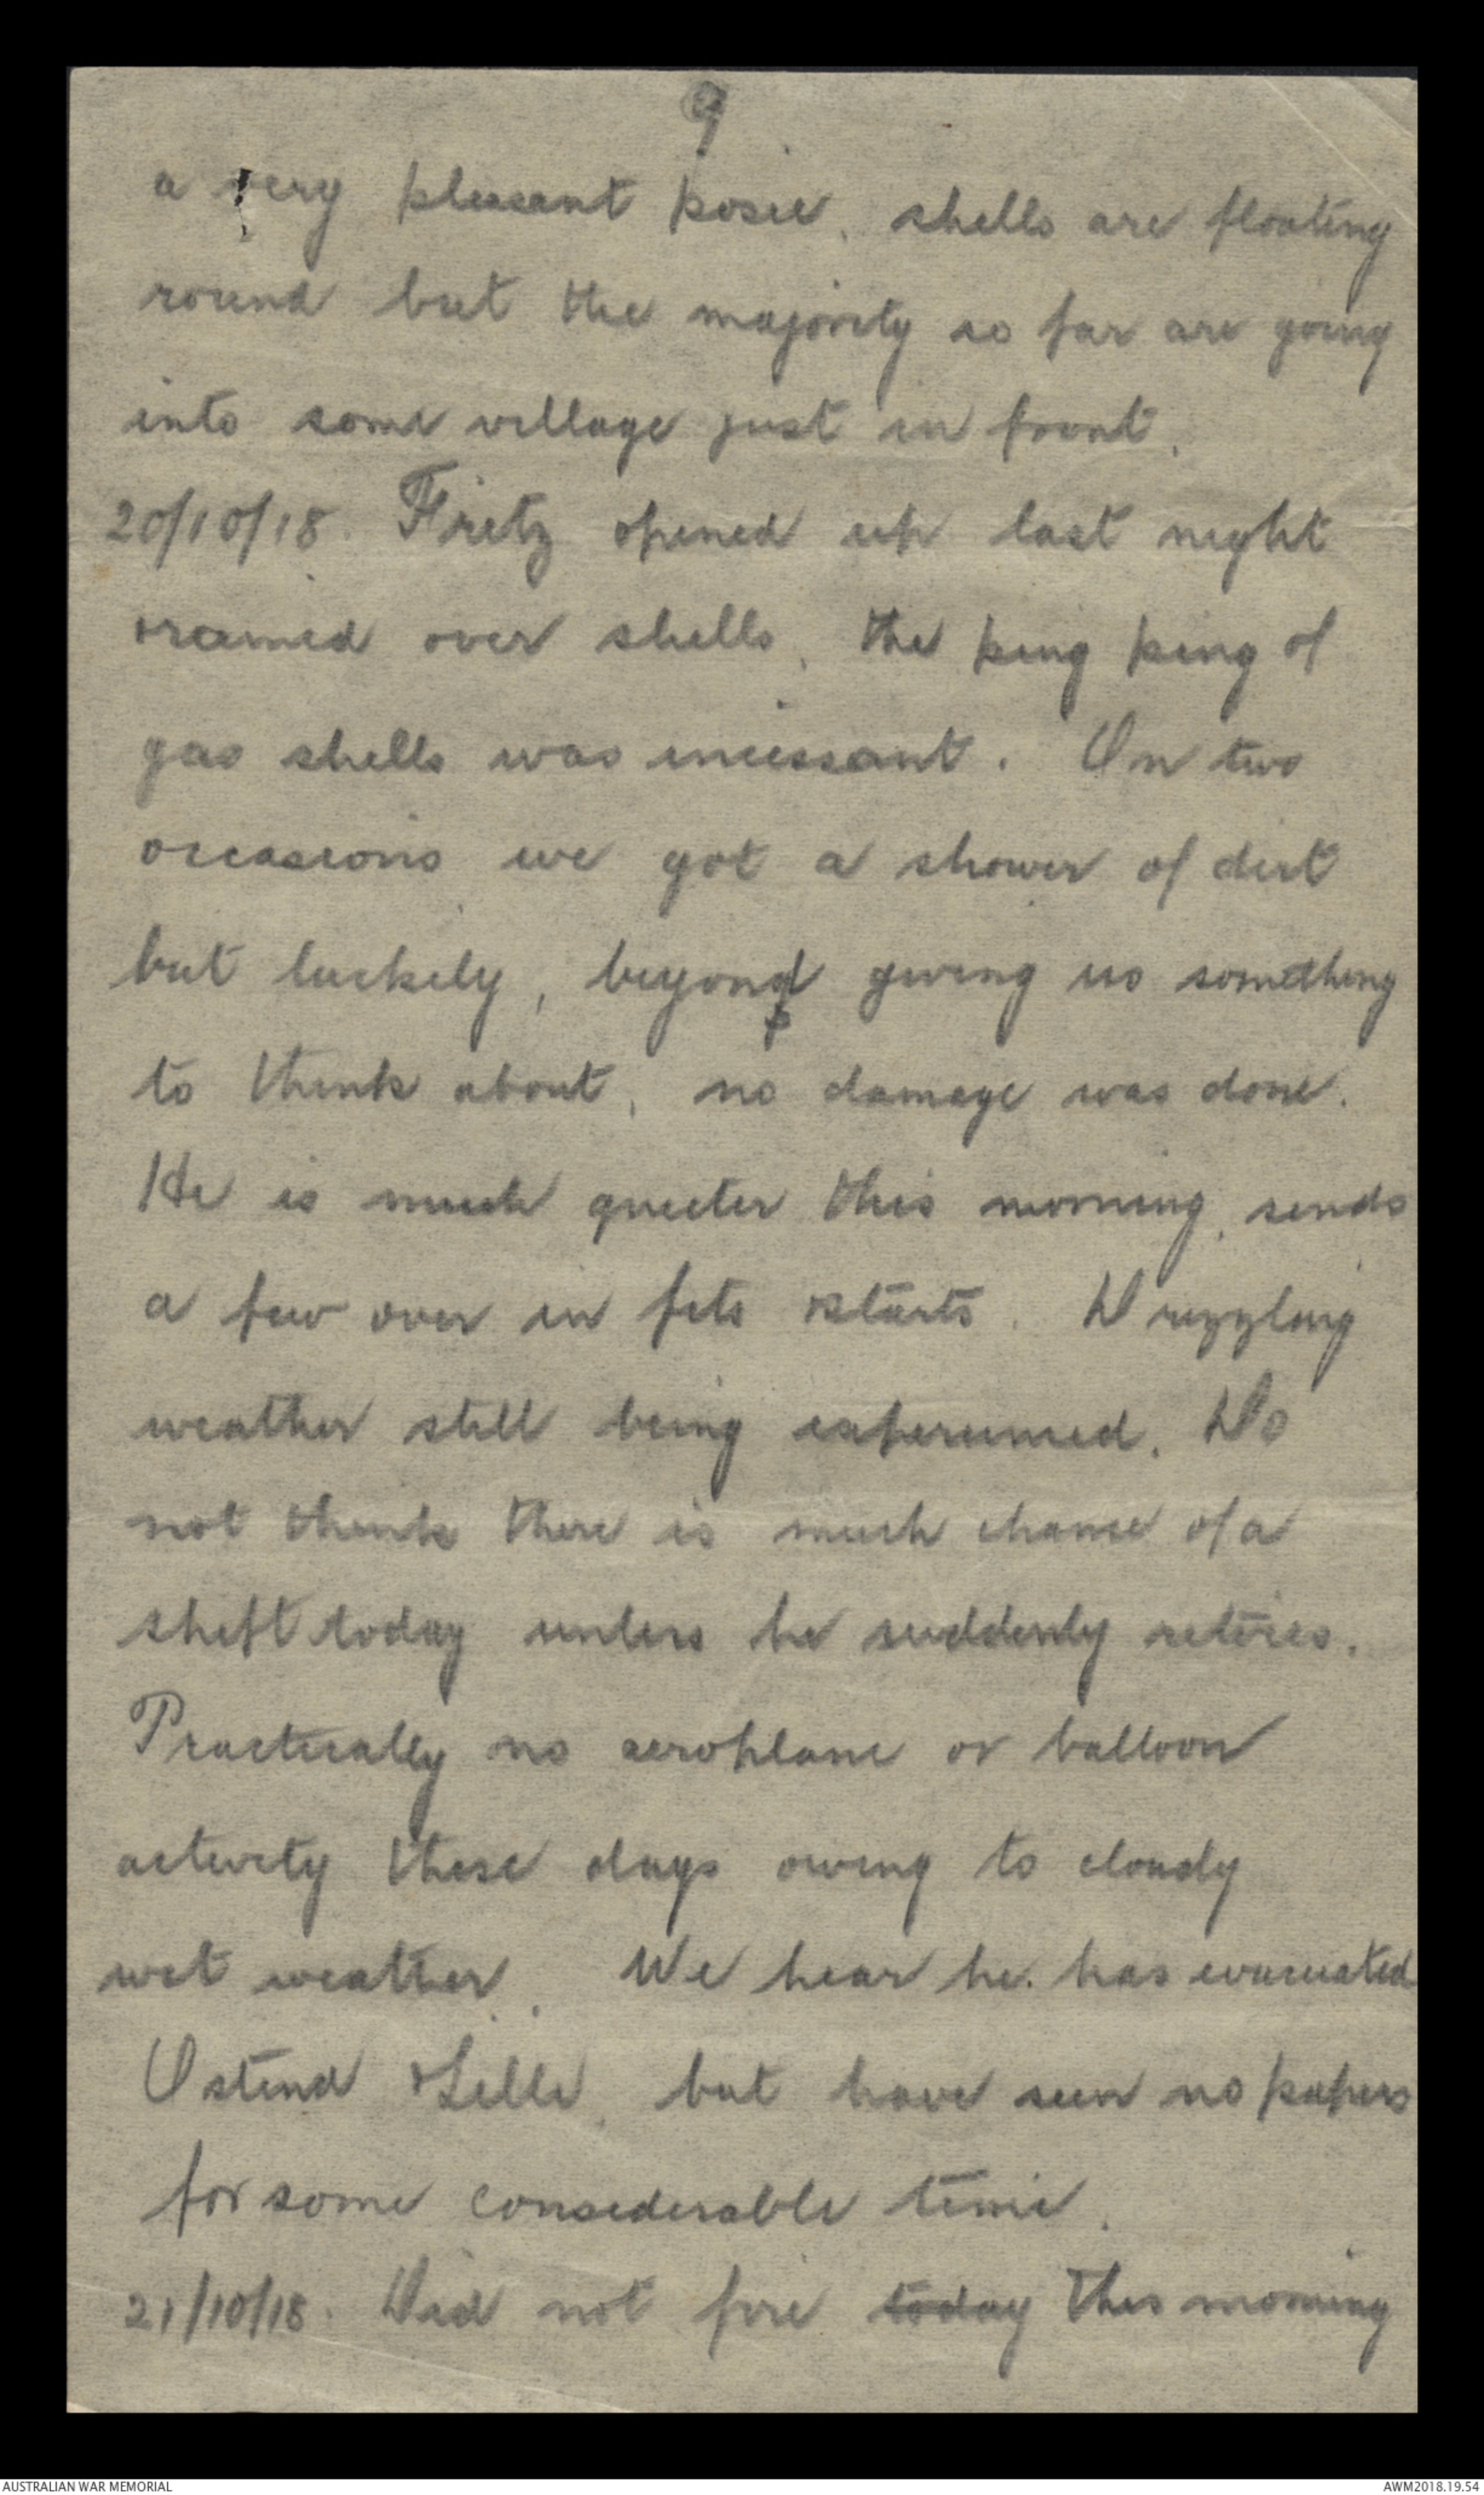 9
a very pleasant posie, shells are floating
round but the majority so far are going
into some village just in front.
20/10/18. Fritz opened up last night
& rained over shells, the ping ping of
gas shells was incessant. On two
occasions we got a shower of dirt
but luckily, beyond giving us something
to think about, no damage was done.
He is much quieter this morning, sends
a few over in fits & starts. Drizzling
weather still being experienced. Do
not think there is much chance of a
shift today unless he suddenly retires.
Practically no aeroplane or balloon
activity these days owing to cloudy
wet weather. We hear he has evacuated
Ostend & Lille, but have seen no papers
for some considerable time.
21/10/18. Did not fire today this morning
AUSTRALIAN WAR MEMORIAL
AWM2018.19.54